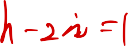 h - 2i = 1